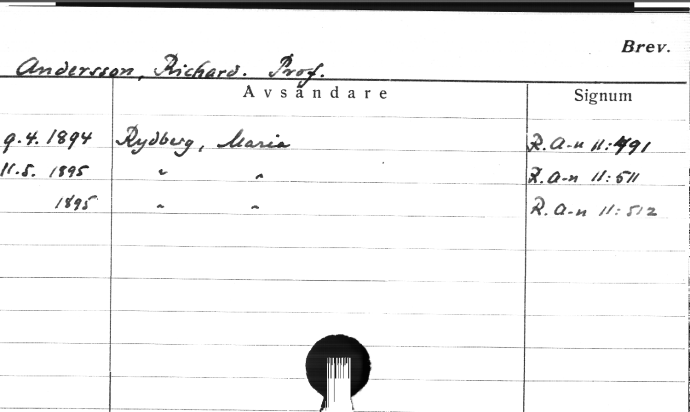 Brev.
Andersson, Richard. Prof.
Avsändare Signum
9.4.1894 Rydberg, Maria R.A-n II:491
11.5. 1895 " " R.A-n II:511
1895 " " R.A-n II:512